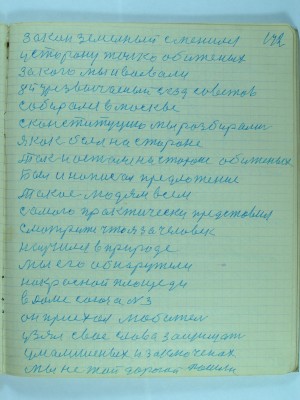 172
закон земельный сменился
у сторону только обиженых
за кого мы и воевали
чрезвычайный сезд советов
собирался в москве
сконституцию мы розбирали
я как был на стороне
так и остался на стороне обиженых
был и написал предложение
такое людям всем
самого практически представил
смотрите что я за человек
научился в природе
мы его обнаружили
на красной площеди
в доме союза №3
он приехал
узял свое слово защищать
умалишеных и заключеных
мы не той дорогой пошли